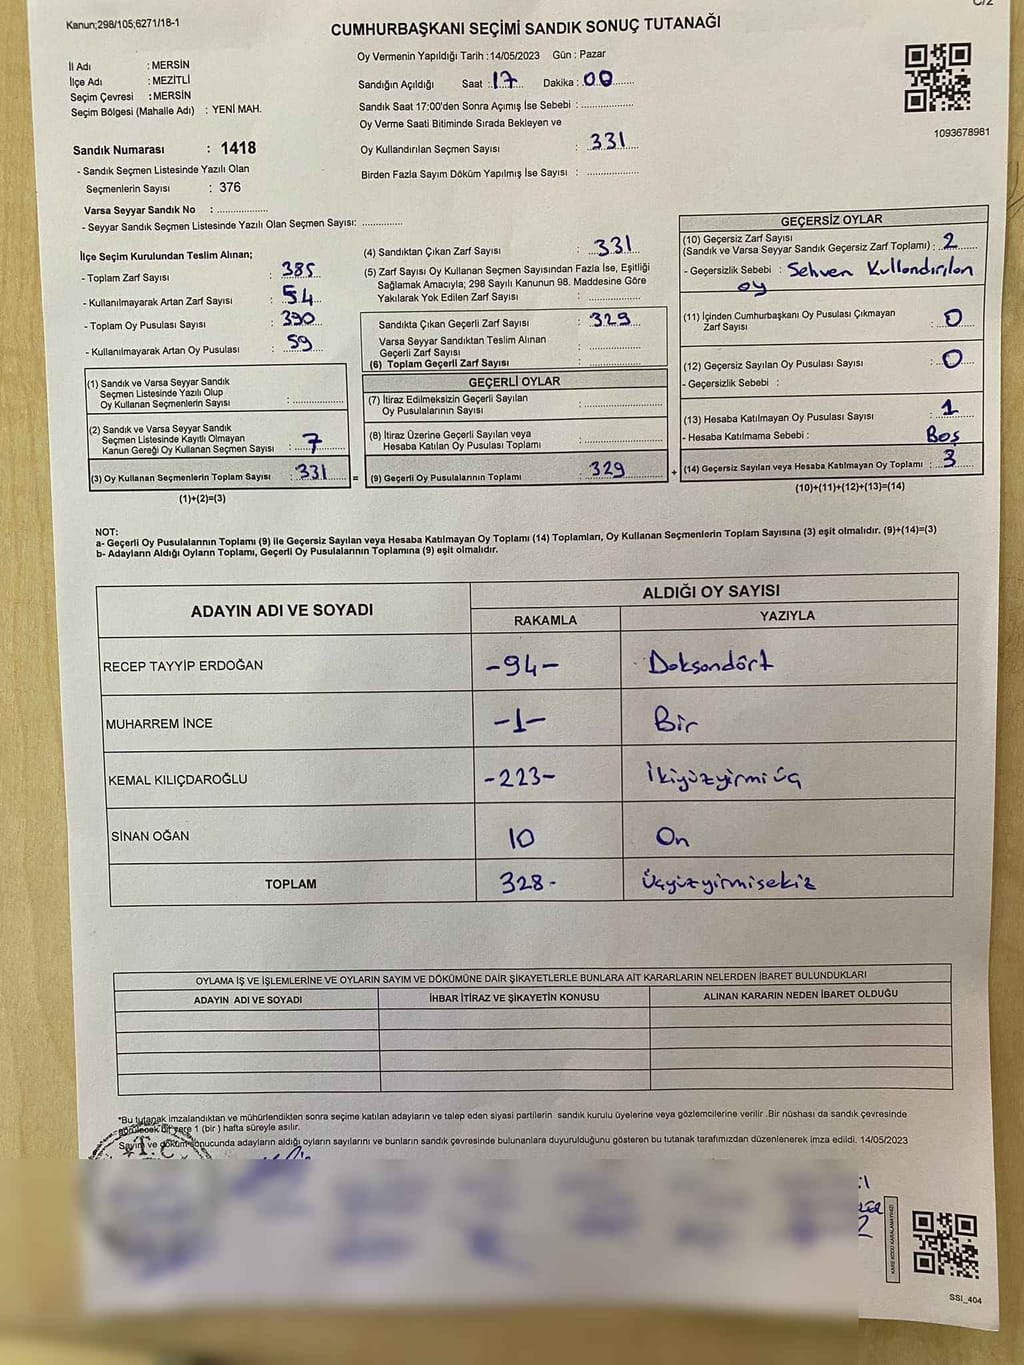 C/2
Kanun;298/105;6271/18-1
CUMHURBAŞKANI SEÇİMİ SANDIK SONUÇ TUTANAĞI
İl Adı : MERSİN
İlçe Adı : MEZİTLİ
Seçim Çevresi : MERSİN
Seçim Bölgesi (Mahalle Adı) : YENİ MAH.
Sandık Numarası : 1418
- Sandık Seçmen Listesinde Yazılı Olan
Seçmenlerin Sayısı : 376
Varsa Seyyar Sandık No : ..................
- Seyyar Sandık Seçmen Listesinde Yazılı Olan Seçmen Sayısı: ..............
Oy Vermenin Yapıldığı Tarih :14/05/2023 Gün : Pazar
Sandığın Açıldığı Saat : 17 Dakika : 00
Sandık Saat 17:00'den Sonra Açımış İse Sebebi : ..................
Oy Verme Saati Bitiminde Sırada Bekleyen ve
Oy Kullandırılan Seçmen Sayısı : 331
Birden Fazla Sayım Döküm Yapılmış İse Sayısı : ..................
1093678981
İlçe Seçim Kurulundan Teslim Alınan;
- Toplam Zarf Sayısı : 385
- Kullanılmayarak Artan Zarf Sayısı : 54
- Toplam Oy Pusulası Sayısı : 390
- Kullanılmayarak Artan Oy Pusulası : 59
(1) Sandık ve Varsa Seyyar Sandık
Seçmen Listesinde Yazılı Olup
Oy Kullanan Seçmenlerin Sayısı : ..................
(2) Sandık ve Varsa Seyyar Sandık
Seçmen Listesinde Kayıtlı Olmayan
Kanun Gereği Oy Kullanan Seçmen Sayısı : 7
(3) Oy Kullanan Seçmenlerin Toplam Sayısı : 331 =
(1)+(2)=(3)
(4) Sandıktan Çıkan Zarf Sayısı : 331
(5) Zarf Sayısı Oy Kullanan Seçmen Sayısından Fazla İse, Eşitliği
Sağlamak Amacıyla; 298 Sayılı Kanunun 98. Maddesine Göre
Yakılarak Yok Edilen Zarf Sayısı : ..................
Sandıkta Çıkan Geçerli Zarf Sayısı : 329
Varsa Seyyar Sandıktan Teslim Alınan
Geçerli Zarf Sayısı : ..................
(6) Toplam Geçerli Zarf Sayısı : ..................
GEÇERLİ OYLAR
(7) İtiraz Edilmeksizin Geçerli Sayılan
Oy Pusulalarının Sayısı : ..................
(8) İtiraz Üzerine Geçerli Sayılan veya
Hesaba Katılan Oy Pusulası Toplamı : ..................
(9) Geçerli Oy Pusulalarının Toplamı : 329 +
GEÇERSİZ OYLAR
(10) Geçersiz Zarf Sayısı
(Sandık ve Varsa Seyyar Sandık Geçersiz Zarf Toplamı) : 2
- Geçersizlik Sebebi : Sehven Kullandırılan
oy
(11) İçinden Cumhurbaşkanı Oy Pusulası Çıkmayan
Zarf Sayısı : 0
(12) Geçersiz Sayılan Oy Pusulası Sayısı : 0
- Geçersizlik Sebebi :
(13) Hesaba Katılmayan Oy Pusulası Sayısı : 1
- Hesaba Katılmama Sebebi : Boş
(14) Geçersiz Sayılan veya Hesaba Katılmayan Oy Toplamı : 3
(10)+(11)+(12)+(13)=(14)
NOT:
a- Geçerli Oy Pusulalarının Toplamı (9) ile Geçersiz Sayılan veya Hesaba Katılmayan Oy Toplamı (14) Toplamları, Oy Kullanan Seçmenlerin Toplam Sayısına (3) eşit olmalıdır. (9)+(14)=(3)
b- Adayların Aldığı Oyların Toplamı, Geçerli Oy Pusulalarının Toplamına (9) eşit olmalıdır.
ADAYIN ADI VE SOYADI ALDIĞI OY SAYISI
RAKAMLA YAZIYLA
RECEP TAYYİP ERDOĞAN -94- Doksandört
MUHARREM İNCE -1- Bir
KEMAL KILIÇDAROĞLU -223- İkiyüzyirmi üç
SİNAN OĞAN 10 On
TOPLAM 328- Üçyüzyirmisekiz
OYLAMA İŞ VE İŞLEMLERİNE VE OYLARIN SAYIM VE DÖKÜMÜNE DAİR ŞİKAYETLERLE BUNLARA AİT KARARLARIN NELERDEN İBARET BULUNDUKLARI
ADAYIN ADI VE SOYADI İHBAR İTİRAZ VE ŞİKAYETİN KONUSU ALINAN KARARIN NEDEN İBARET OLDUĞU
*Bu tutanak imzalandıktan ve mühürlendikten sonra seçime katılan adayların ve talep eden siyasi partilerin sandık kurulu üyelerine veya gözlemcilerine verilir .Bir nüshası da sandık çevresinde
görülecek bir yere 1 (bir ) hafta süreyle asılır.
Sayım ve döküm sonucunda adayların aldığı oyların sayılarını ve bunların sandık çevresinde bulunanlara duyurulduğunu gösteren bu tutanak tarafımızdan düzenlenerek imza edildi. 14/05/2023
T.C
KARE KODU KARALAMAYINIZ!
SSI_404